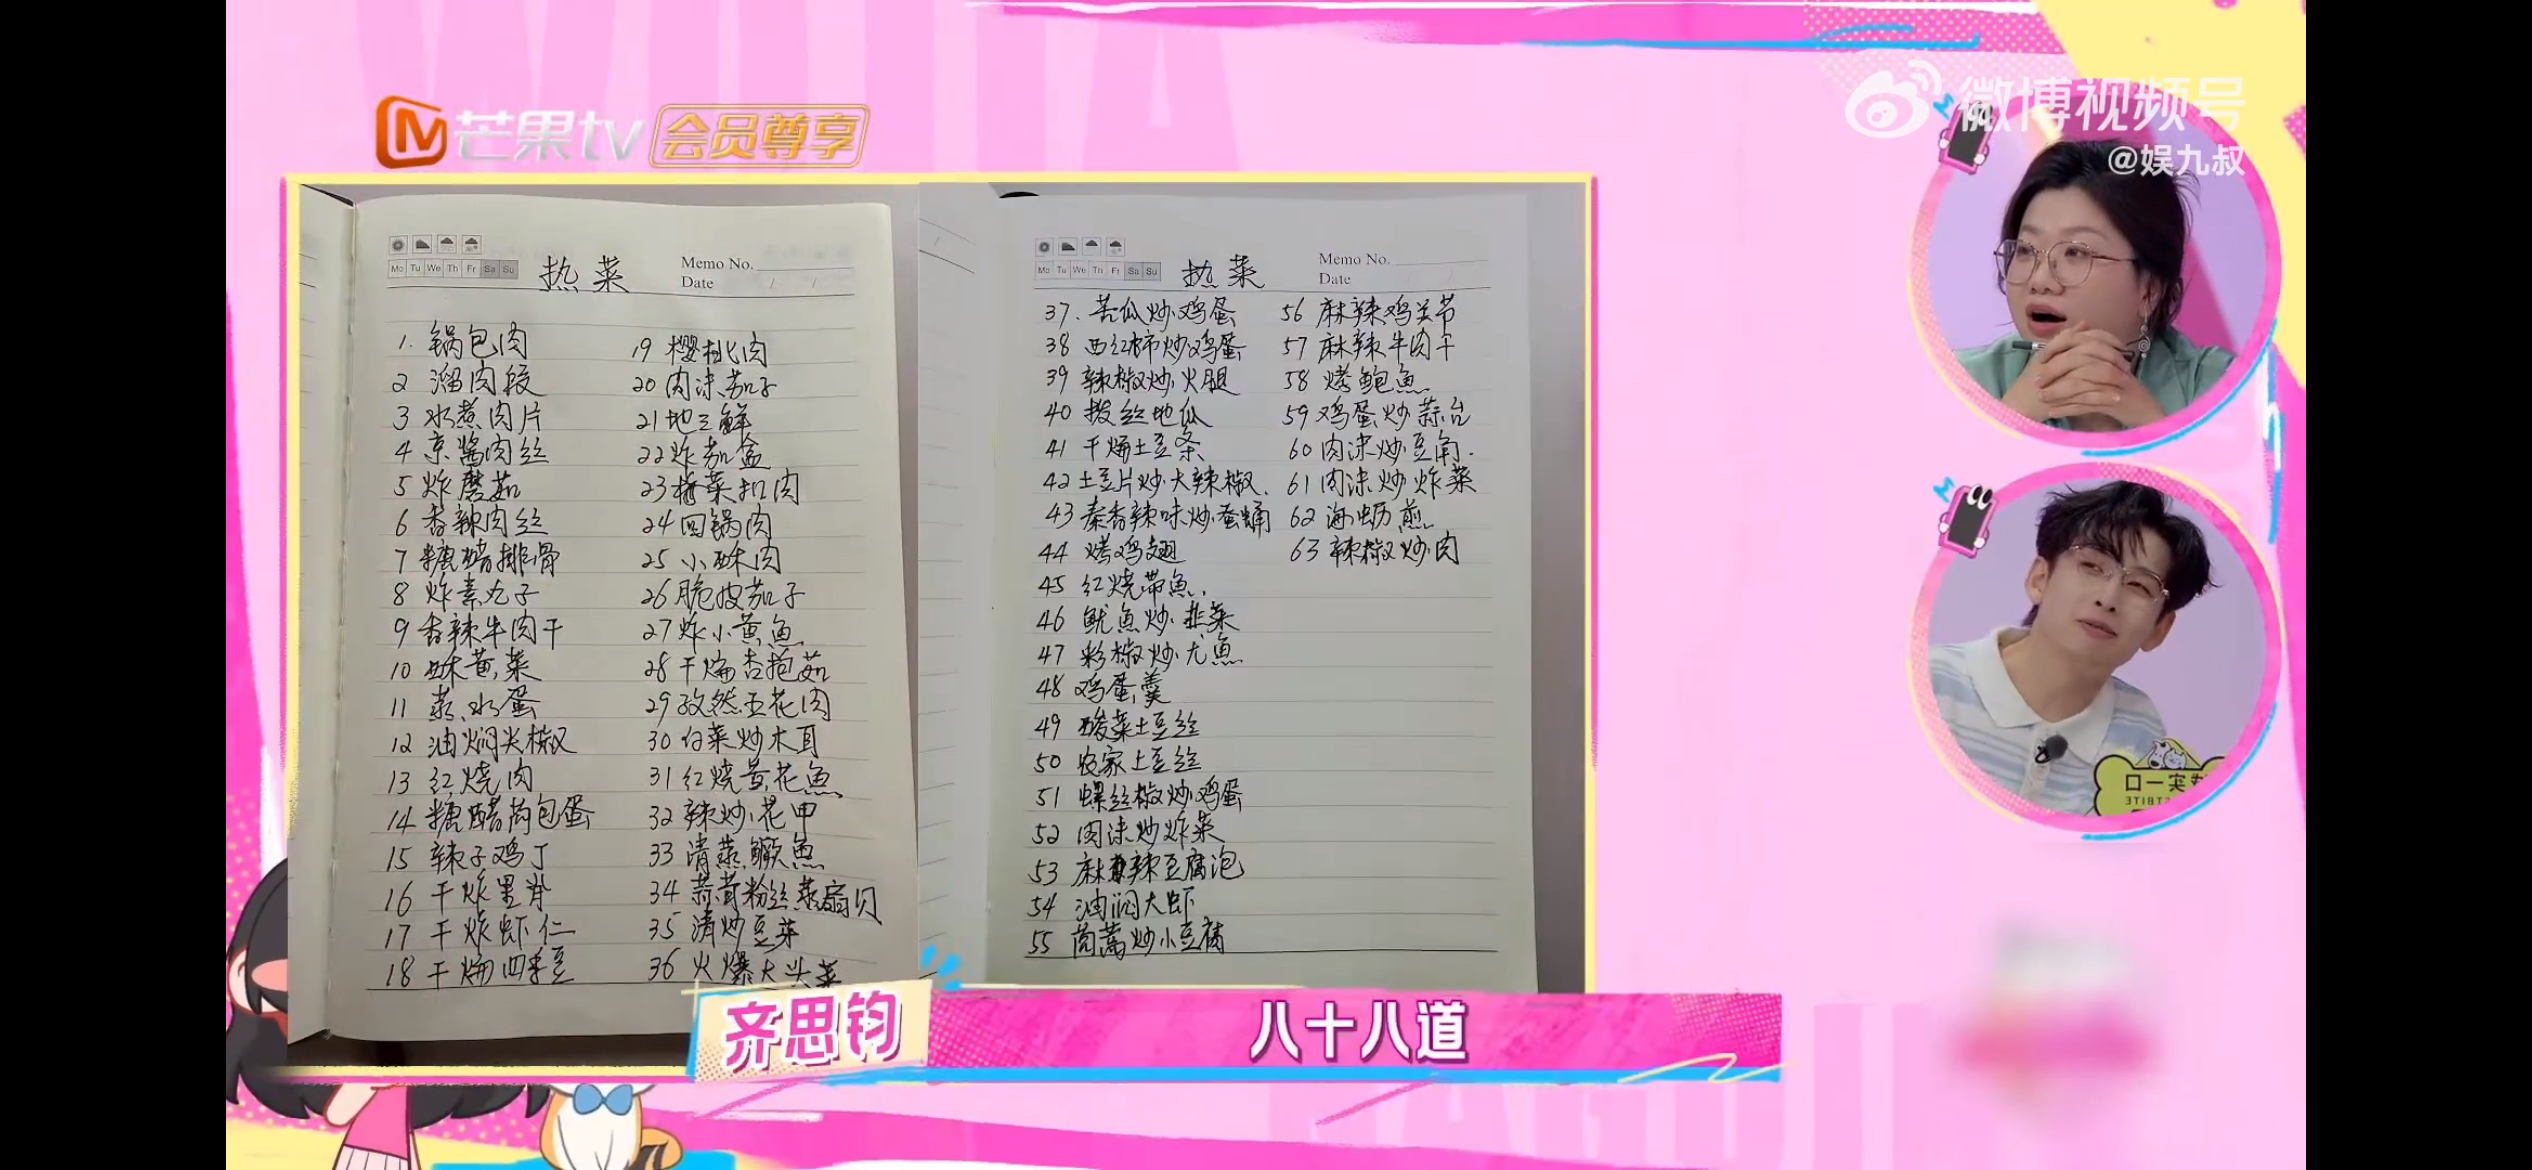 芒果tv 会员尊享
微博视频号
@娱九叔
Mo Tu We Th Fr Sa Su
热菜
Memo No.
Date / /
1. 锅包肉
2 溜肉段
3 水煮肉片
4 京酱肉丝
5 炸磨茹
6 香辣肉丝
7 糖醋排骨
8 炸素丸子
9 香辣牛肉干
10 酥黄菜
11 蒸水蛋
12 油焖尖椒
13 红烧肉
14 糖醋荷包蛋
15 辣子鸡丁
16 干炸里脊
17 干炸虾仁
18 干煸四季豆
19 樱桃肉
20 肉沫茄子
21 地三鲜
22 炸茄盒
23 梅菜扣肉
24 回锅肉
25 小酥肉
26 脆皮茄子
27 炸小黄鱼
28 干煸杏抱茹
29 孜然五花肉
30 白菜炒木耳
31 红烧黄花鱼
32 辣炒花甲
33 清蒸鳜鱼
34 蒜茸粉丝蒸扇贝
35 清炒豆芽
36 火爆大头菜
Mo Tu We Th Fr Sa Su
热菜
Memo No.
Date
37. 苦瓜炒鸡蛋
38 西红柿炒鸡蛋
39 辣椒炒火腿
40 拔丝地瓜
41 干煸土豆条
42 土豆片炒大辣椒.
43 秦香辣味炒蚕蛹
44 烤鸡翅
45 红烧带鱼.
46 鱿鱼炒韭菜
47 彩椒炒尤鱼
48 鸡蛋羹
49 酸菜土豆丝
50 农家土豆丝
51 螺丝椒炒鸡蛋
52 肉沫炒炸菜
53 麻辣豆腐泡
54 油焖大虾
55 茼蒿炒小豆腐
56 麻辣鸡关节
57 麻辣牛肉干
58 烤鲍鱼
59 鸡蛋炒蒜台
60 肉沫炒豆角.
61 肉沫炒炸菜
62 海蛎煎
63 辣椒炒肉
齐思钧
八十八道